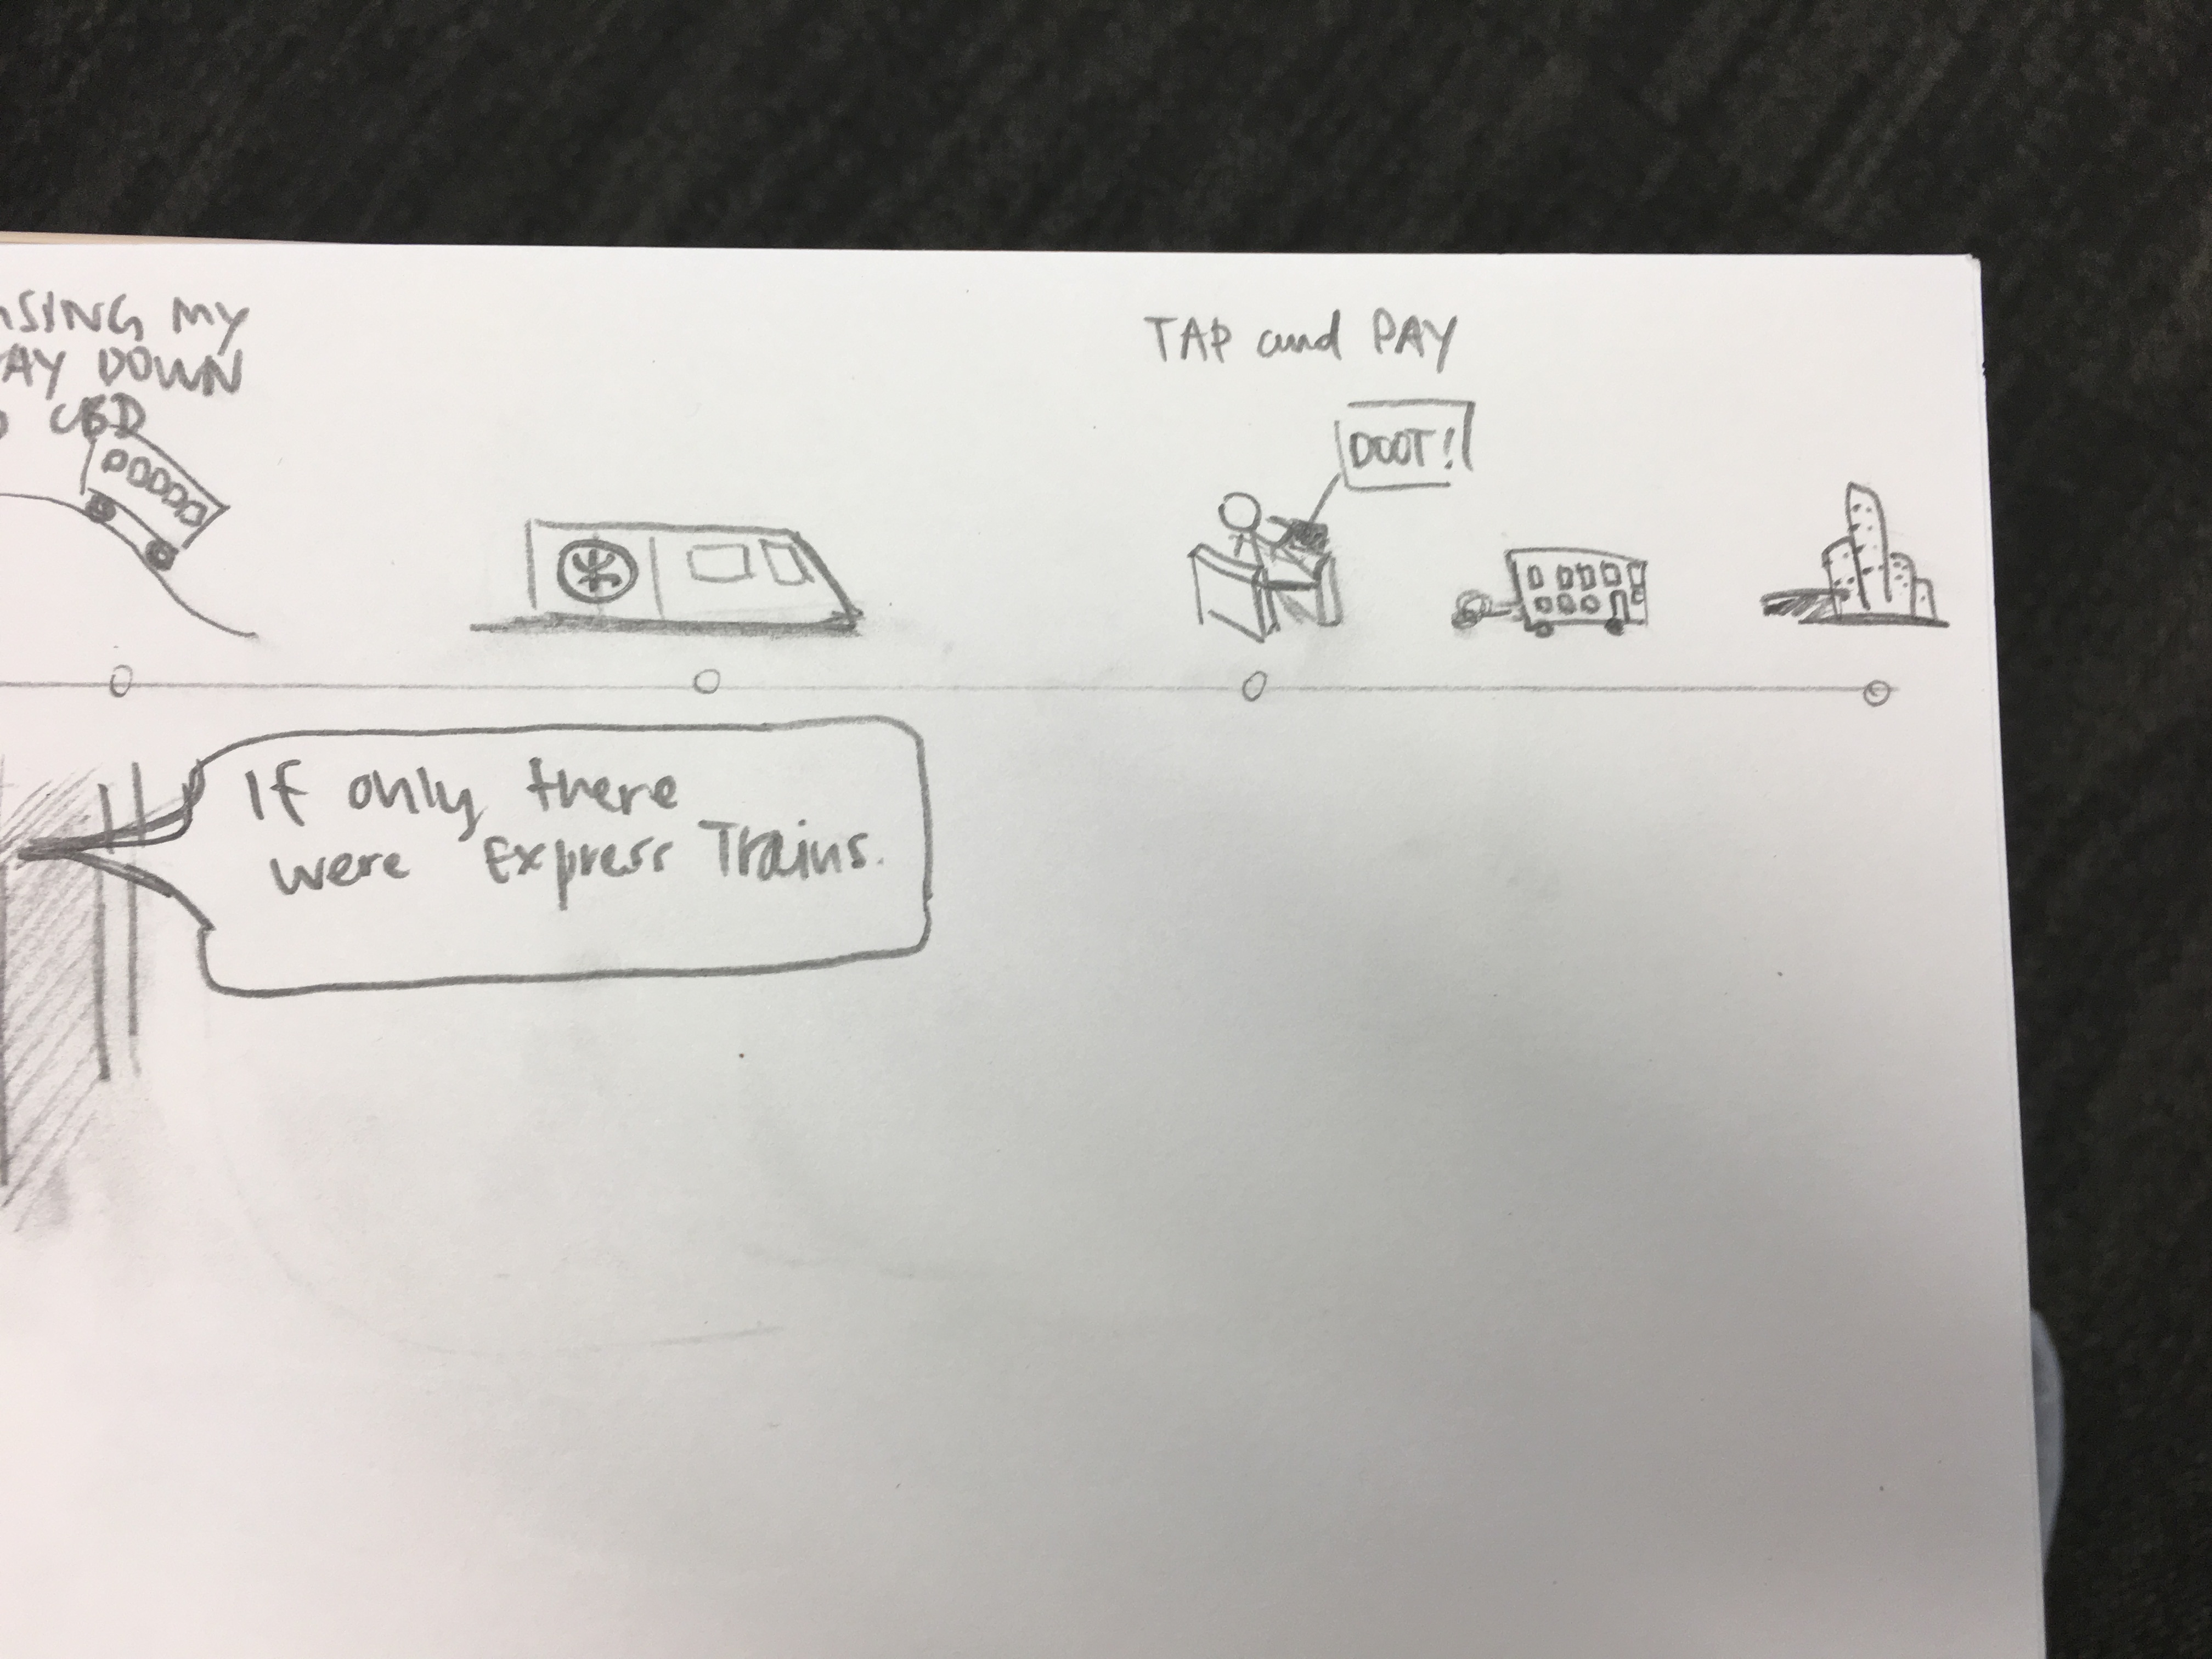 MY
DOWN
CBD
TAP and PAY
DOOT!
If only there
were Express Trains.